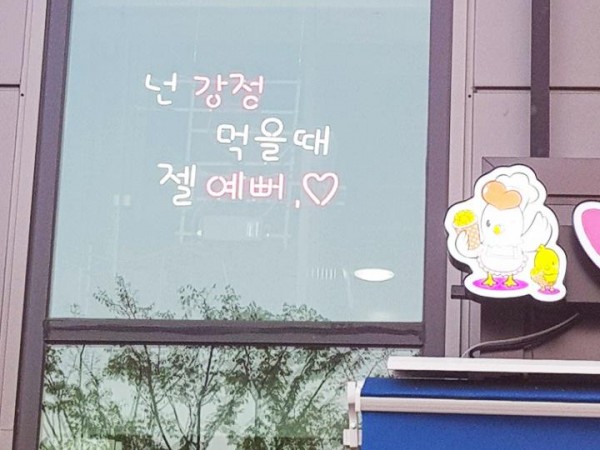 넌 강정
먹을때
젤 예뻐.♡